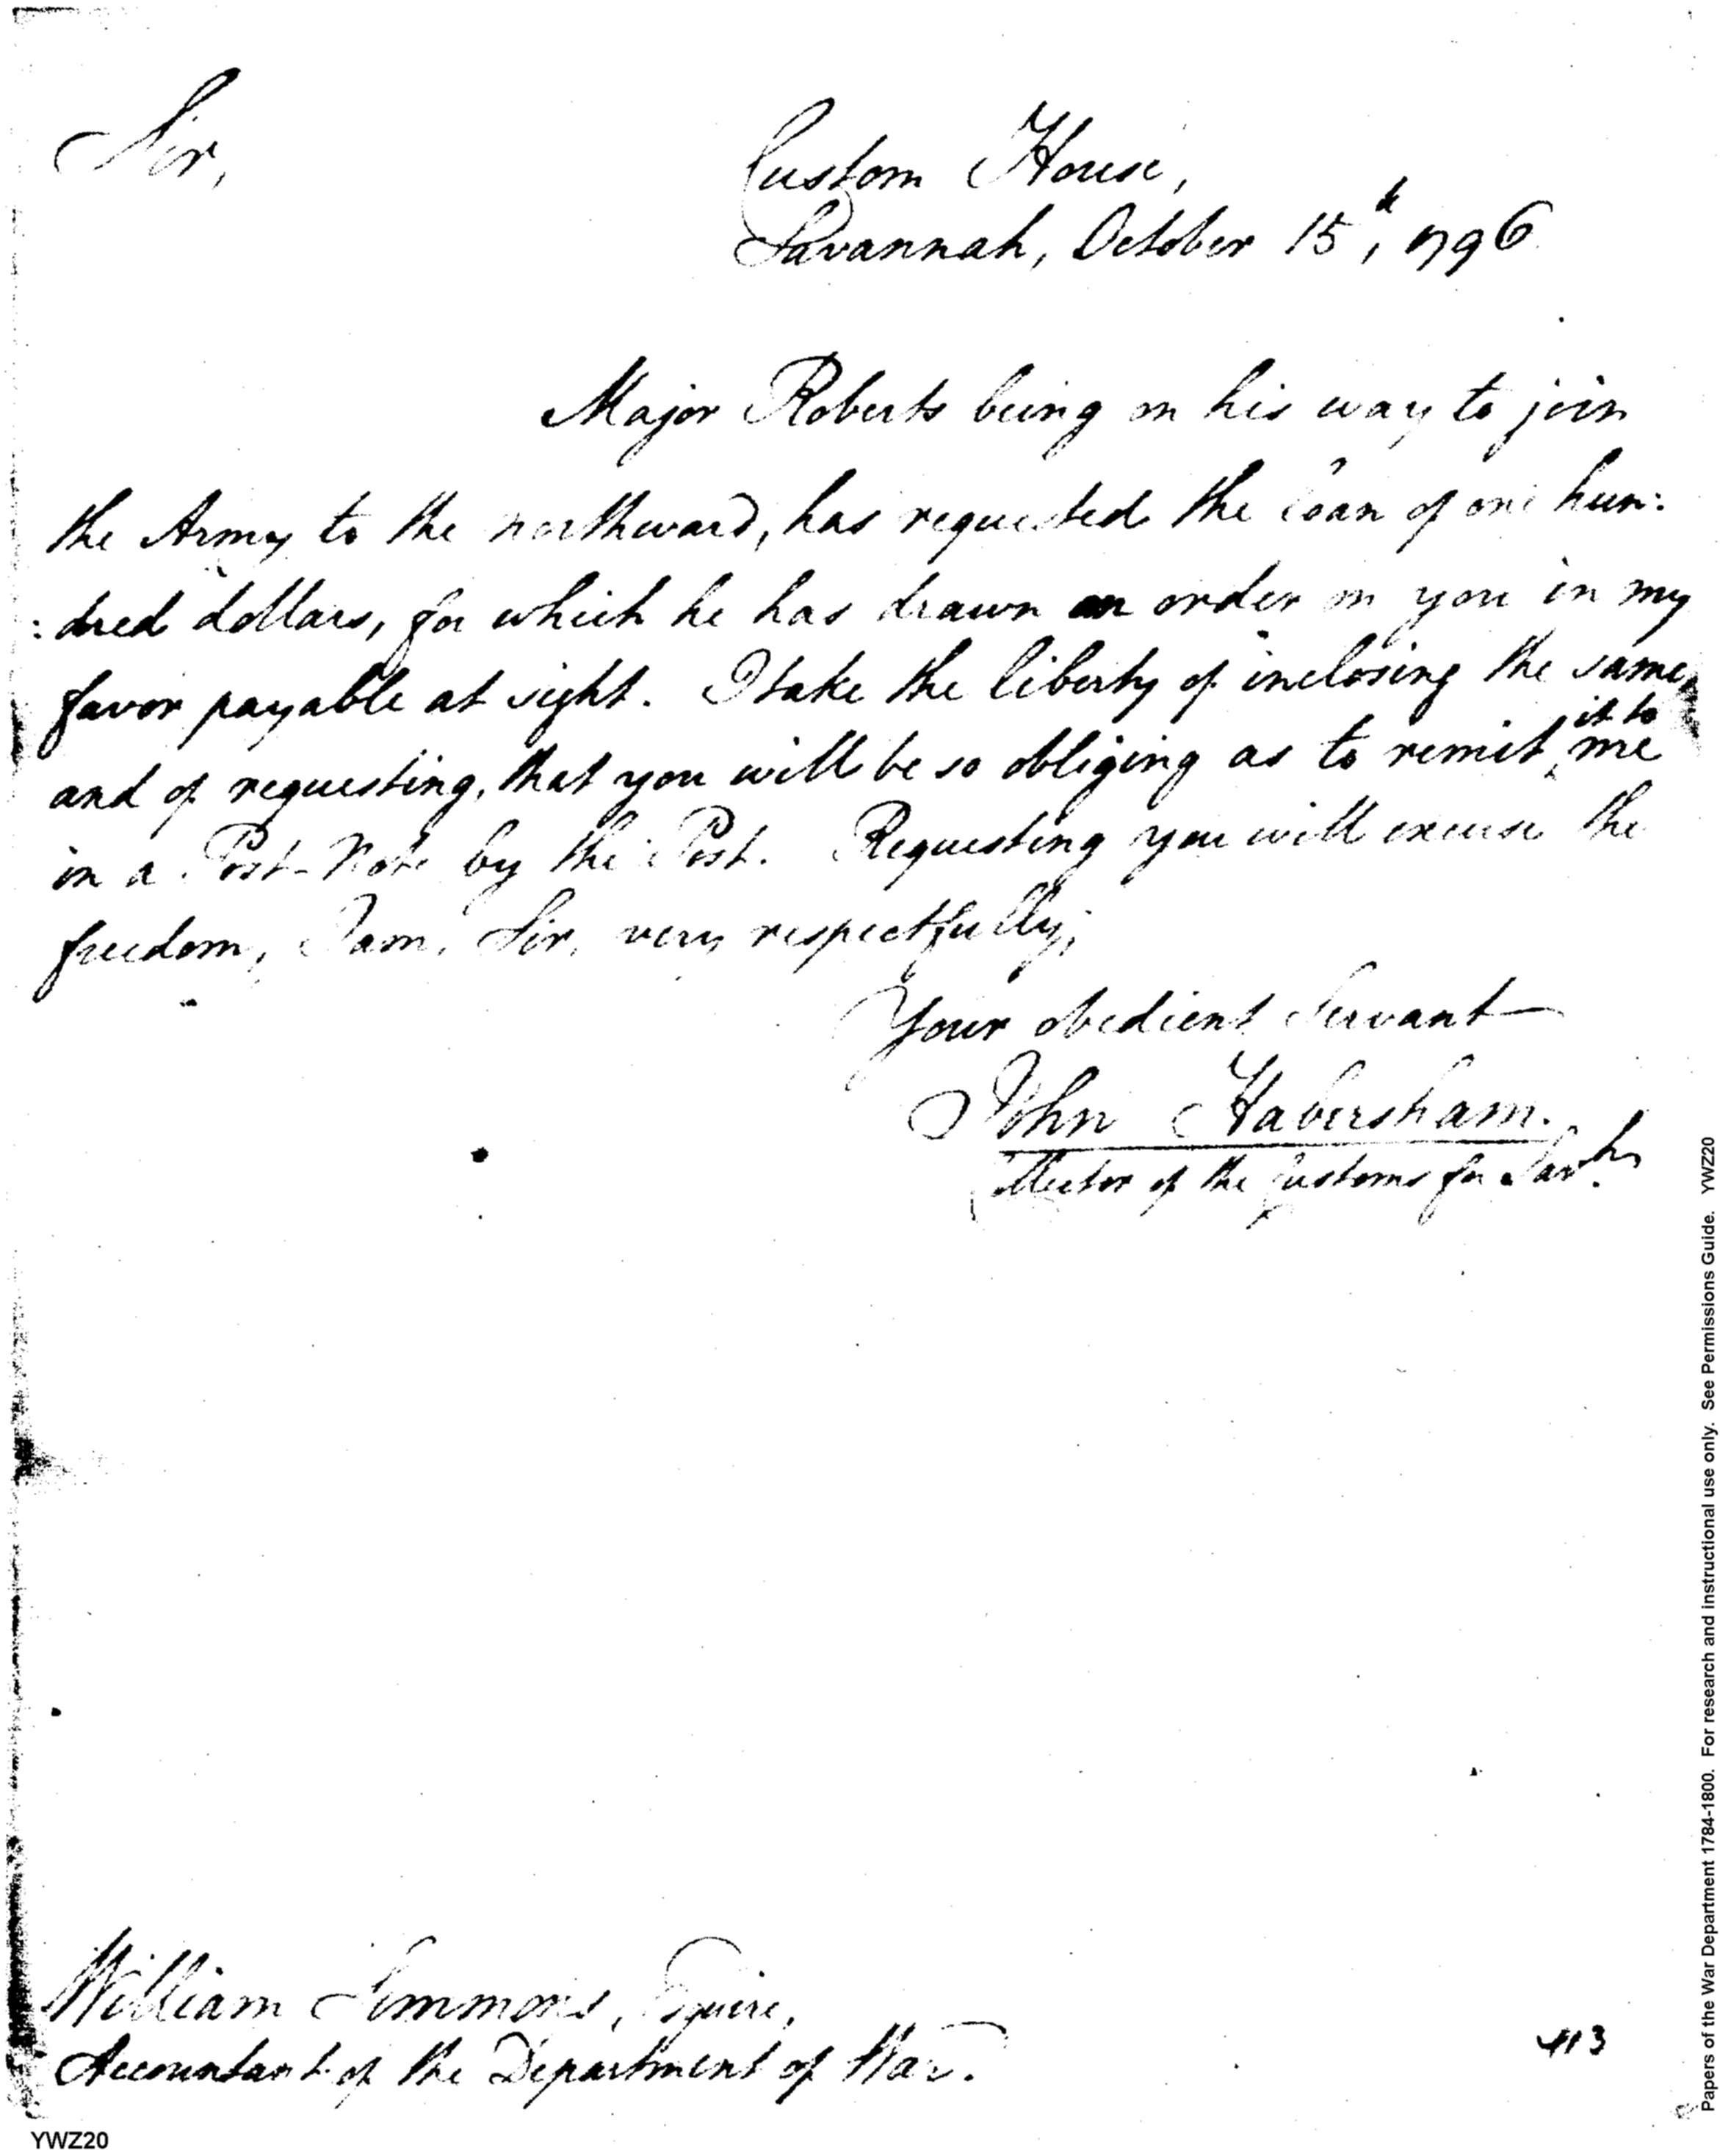 Sir,
Custom House,
Savannah, October 15th, 1796
Major Roberts being on his way to join
the Army to the northward, has requested the loan of one hun:
:dred dollars, for which he has drawn an order on you in my
favor payable at sight. I take the liberty of inclosing the same,
and of requesting, that you will be so obliging as to remit it to me
in a Post-Note by the Post. Requesting you will excuse the
freedom, I am, Sir, very respectfully,
Your obedient Servant
John Habersham.
Collector of the Customs for Savh.
William Simmons, Esquire,
Accountant of the Department of War.
413
YWZ20
Papers of the War Department 1784-1800. For research and instructional use only. See Permissions Guide. YWZ20